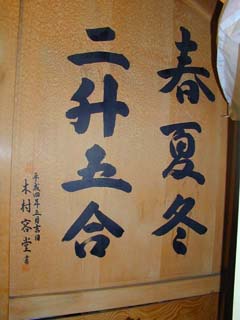 春夏冬
二升五合
平成四年五月吉日
木村容堂書